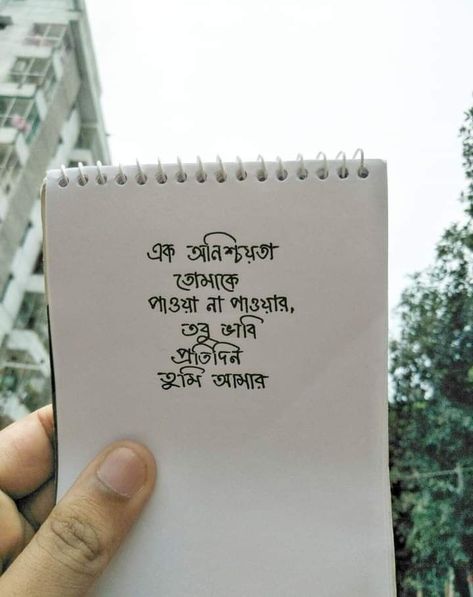 এক অনিশ্চয়তা
তোমাকে
পাওয়া না পাওয়ার,
তবু ভাবি
প্রতিদিন
তুমি আমার